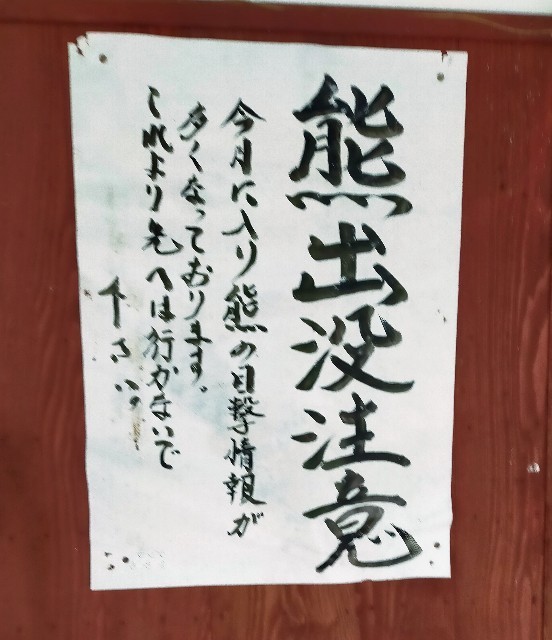 熊出没注意
今月に入り熊の目撃情報が
多くなっております。
これより先へは行かないで
下さい。